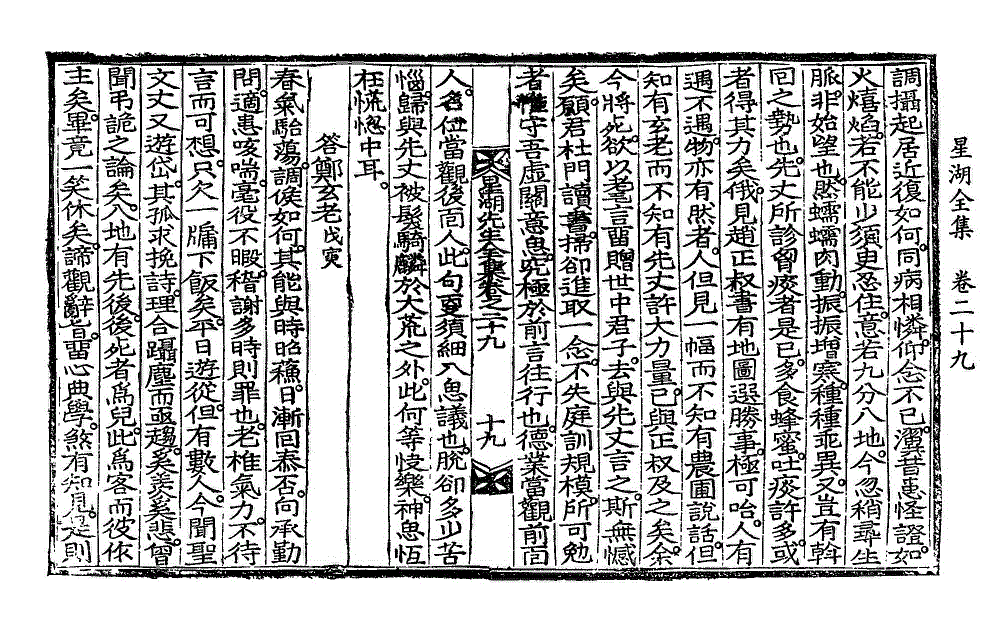 星湖全集　卷二十九
調攝起居近復如何。同病相憐。仰念不已。瀷昔患怪證。如
火熺焰。若不能少須臾忍住。意若九分入地。今忽稍尋生
脈。非始望也。然蠕蠕肉動。振振增寒。種種乖異。又豈有斡
回之勢也。先丈所診胷痰者是已。多食蜂蜜。吐痰許多。或
者得其力矣。俄見趙正叔書。有地圖選勝事。極可咍。人有
遇不遇。物亦有然者。人但見一幅而不知有農圃說話。但
知有玄老而不知有先丈許大力量。已與正叔及之矣。余
今將死。欲以耄言留贈世中君子。去與先丈言之。斯無憾
矣。顧君杜門讀書。掃卻進取一念。不失庭訓規模。所可勉
者。惟守吾虛關意思。究極於前言往行也。德業當觀前面
星湖先生全集卷之二十九　十九
人。名位當觀後面人。此句更須細入思議也。脫卻多少苦
惱。歸與先丈被髮騎麟於大荒之外。此何等快樂。神思恆
在慌惚中耳。
答鄭玄老 戊寅
春氣駘蕩。調候如何。其能與時昭蘇。日漸回泰否。向承勤
問。適患咳喘。毫役不暇。稽謝多時則罪也。老椎氣力。不待
言而可想。只欠一牖下飯矣。平日遊從。但有數人。今聞聖
文丈又遊岱。其孤求挽詩。理合躡塵而亟趨。奚奚奚悲。曾
聞弔詭之論矣。八地有先後。後死者爲兒。此爲客而彼依
主矣。畢竟一笑休矣。諦觀辭旨。留心典學。煞有知見。是則